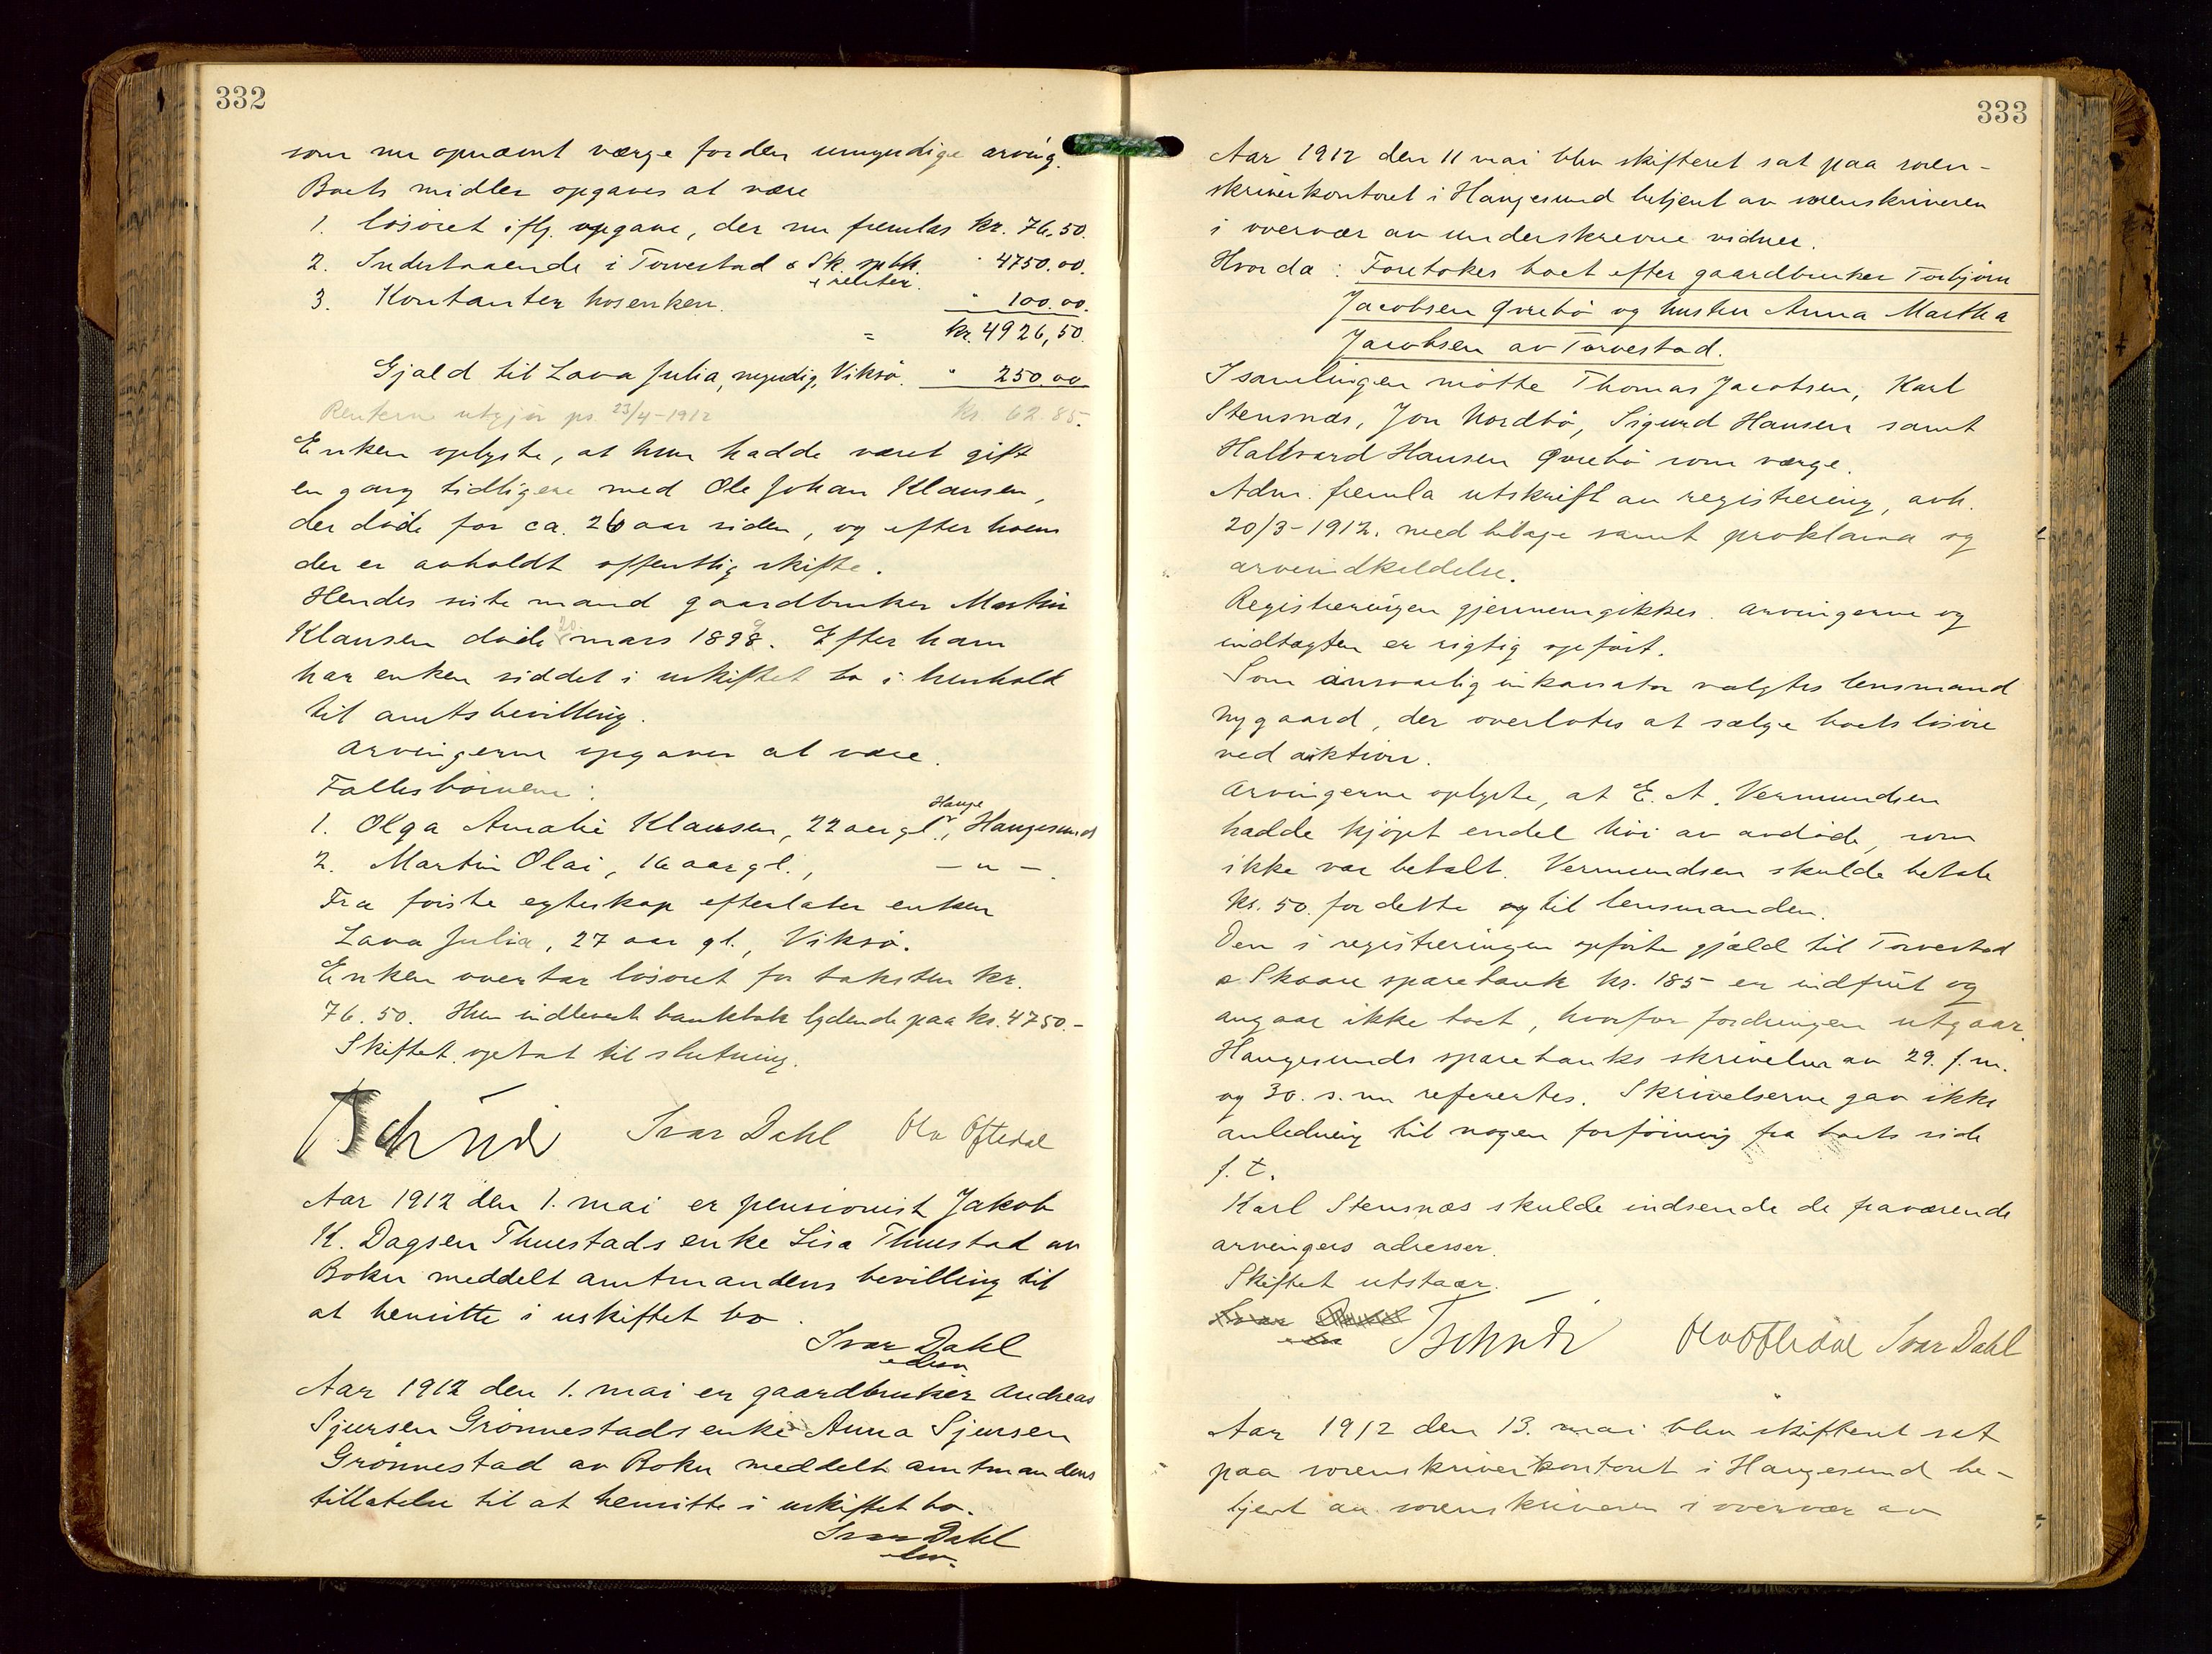 332
som nu opnævnt værge for den umyndige arving.
Boets midler opgaves at være
1. løsøret iflg. opgave, der nu fremlas kr. 76.50.
2. Indestaaende i Torvestad & Sk. spbk. " 4750.00.
+ renter.
3. Kontanter hos enken. " 100.00.
= kr. 4926,50.
Gjæld til Lava Julia, myndig, Viksø. " 250.00
Renterne utgjør pr. 23/4-1912 kr. 62.85.
Enken oplyste, at hun hadde været gift
en gang tidligere med Ole Johan Klausen,
der døde for ca. 26 aar siden, og efter hvem
der er avholdt offentlig skifte.
Hendes siste mand gaardbruker Martin
Klausen døde 20. mars 1898. Efter ham
har enken siddet i uskiftet bo i henhold
til amtsbevilling.
Arvingerne opgaves at være.
Fællesbørnene:
1. Olga Amalie Klausen, 22 aar gl., Hauge, Haugesund
2. Martin Olai, 16 aar gl., — " —.
Fra første egteskap efterlater enken
Lava Julia, 27 aar gl., Viksø.
Enken overtar løsøret for taksten kr.
76.50. Hun indleverte bankbok lydende paa kr. 4750.-
Skiftet optat til slutning.
Tschudi Ivar Dahl Olav Oftedal
Aar 1912 den 1. mai er pensionist Jakob
K. Dagsen Thuestads enke Lisa Thuestad av
Bokn meddelt amtmandens bevilling til
at hensitte i uskiftet bo.
Ivar Dahl
Aar 1912 den 1. mai er gaardbruker Andreas
Sjursen Grønnestads enke Anna Sjursen
Grønnestad av Bokn meddelt amtmandens
tillatelse til at hensitte i uskiftet bo.
Ivar Dahl
333
Aar 1912 den 11 mai blev skifteret sat paa soren-
skriverkontoret i Haugesund betjent av sorenskriveren
i overvær av underskrevne vidner.
Hvorda: Foretokes boet efter gaardbruker Torbjørn
Jacobsen Qvrebø og hustru Anna Martha
Jacobsen av Torvestad.
I samlingen møtte Thomas Jacobsen, Karl
Stensnæs, Jon Nordbø, Sigurd Hansen samt
Hallvard Hansen Qvrebø som værge.
Adm. fremla utskrift av registrering, avh.
20/3-1912. med bilage samt proklama og
arveindkaldelse.
Registreringen gjennemgikkes. Arvingerne og
indtægten er rigtig opført.
Som ansvarlig inkassator valgtes lensmand
Nygaard, der overlotes at sælge boets løsøre
ved auktion.
Arvingerne oplyste, at E. A. Vermundsen
hadde kjøpt endel høi av avdøde, som
ikke var betalt. Vermundsen skulde betale
kr. 50. for dette og til lensmanden.
Den i registreringen opførte gjæld til Torvestad
& Skaare sparebank kr. 185- er indfriet og
angaar ikke boet, hvorfor fordringen utgaar.
Haugesunds sparebanks skrivelser av 29. f.m.
og 30. s.m. refererte. Skrivelserne gav ikke
anledning til nogen forføining fra boets side
f. t.
Karl Stensnæs skulde indsende de fraværende
arvingers adresser.
Skiftet utstaar.
Tschudi Olav Oftedal Ivar Dahl
Aar 1912 den 13. mai blev skifteret sat
paa sorenskriverkontoret i Haugesund be-
tjent av sorenskriveren i overvær av